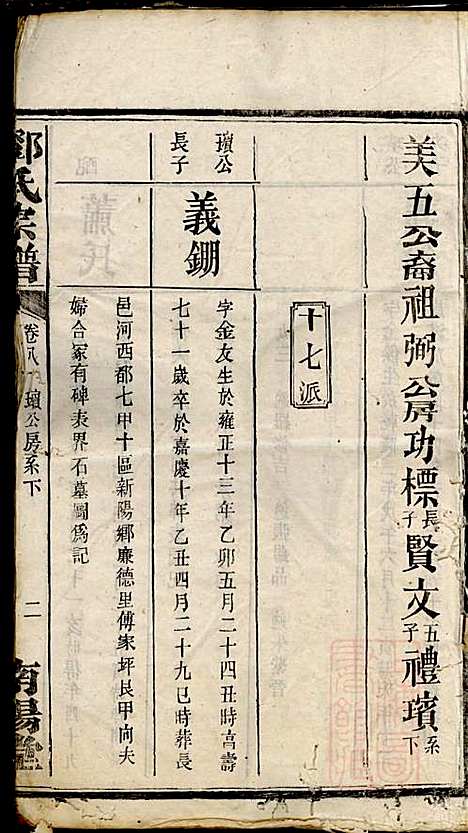 美五公裔祖弼公房功標長子賢文五子禮璸系下
十七派
璸公長子
義鍘
字金友生於雍正十三年乙卯五月二十四丑時享壽
七十一歲卒於嘉慶十年乙丑四月二十九巳時葬長
邑河西都七甲十區新陽鄉廉德里傅家坪艮甲向夫
婦合冢有碑表界石墓圖爲記
鄧氏宗譜
卷八
璸公房系下
二
南陽堂